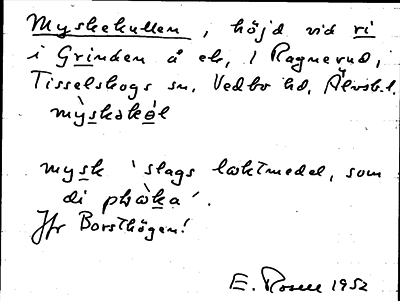 Myskekullen, höjd vid ri
i Grinden å ek, 1 Ragnerud,
Tisselskogs sn, Vedbo hd, Älvsb.l.
mỳskəkòl
mysk 'slags luktmedel, som
di pløka'.
Jfr Borsthögen!
E. Rosell 1952